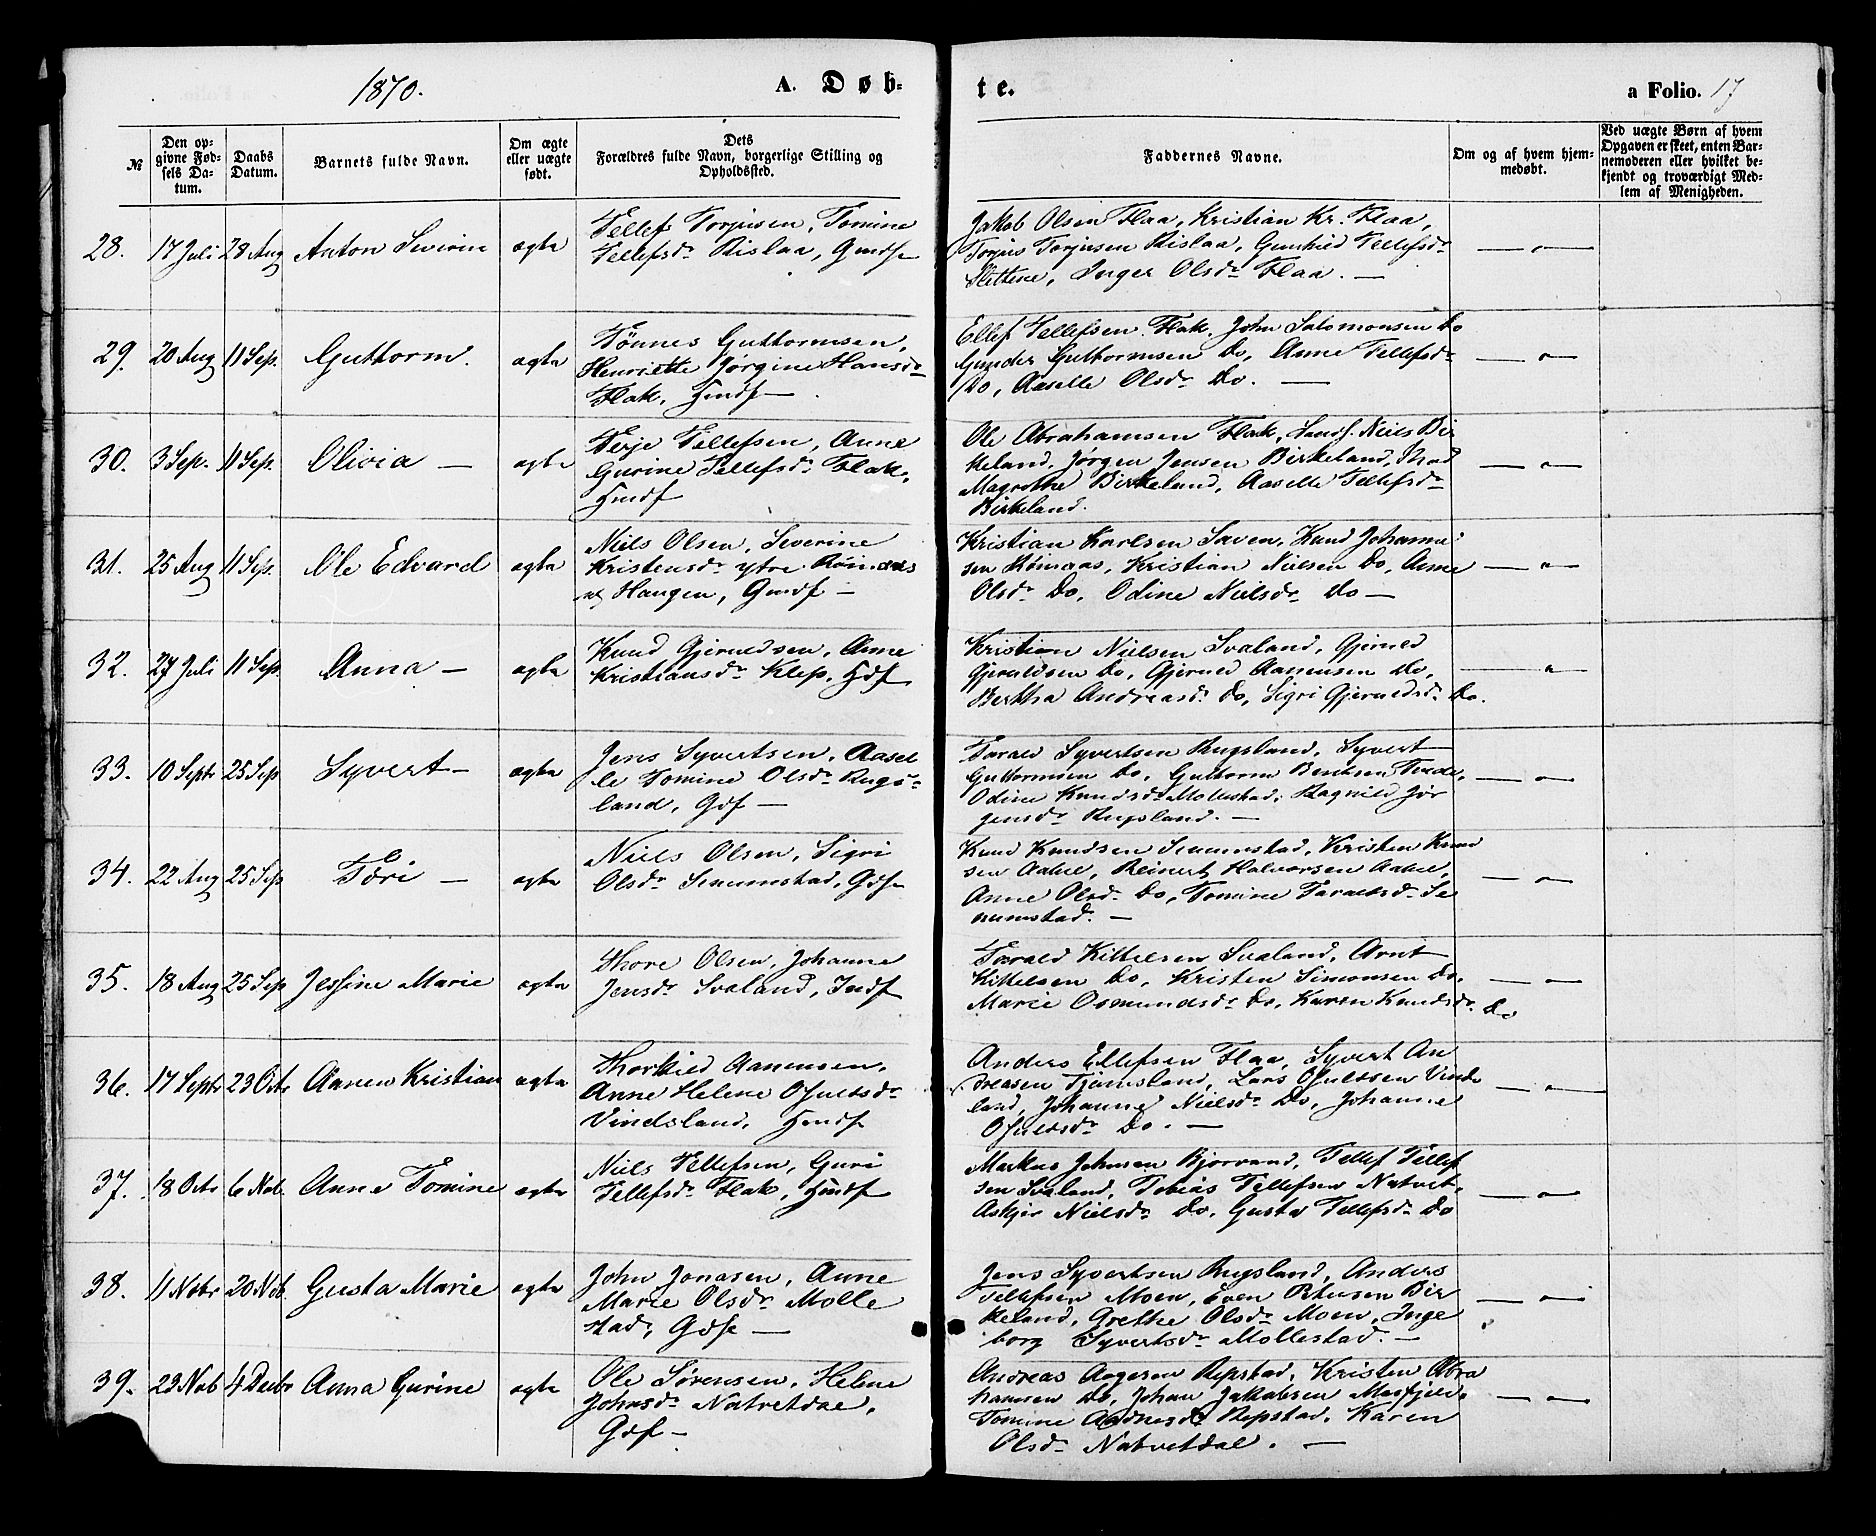 1870.
A. Døb-
te.
a Folio. 17
№
Den op-
givne Fød-
sels Da-
tum.
Daabs
Datum.
Barnets fulde Navn.
Om ægte
eller uægte
født.
Dets
Forældres fulde Navn, borgerlige Stilling og
Opholdssted.
Faddernes Navne.
Om og af hvem hjem-
medøbt.
Ved uægte Børn af hvem
Opgaven er skeet, enten Bar-
nemoderen eller hvilket be-
kjendt og troværdigt Med-
lem af Menigheden.
28. 17 Juli 28 Aug Anton Sevirin ægte
Tellef Torjusen, Tomine
Tellefsdr Rislaa, Gmdf
Jakob Olsen Flaa, Kristian Kr. Flaa,
Torjus Torjusen Rislaa, Gunhild Tellefsdr
Slettene, Inger Olsdr Flaa. —
— " —
29. 20 Aug 11 Sep. Guttorm. ægte
Tønnes Guttormsen,
Henriette Jørgine Hansdr
Flak, Hmdf —
Ellef Tellefsen Flak, John Salomonsen Do
Gunder Guttormsen Do, Anne Tellefsdr
Do, Aaselle Olsdr Do. —
— " —
30. 3 Sep. 11 Sep. Olivia — ægte
Terje Tellefsen, Anne
Gurine Tellefsdr Flak,
Hmdf
Ole Abrahamsen Flak, Niels Bir
keland, Jørgen Jensen Birkeland,
Magrethe Birkeland, Aaselle Tellefsdr
Birkeland.
— " —
31. 25 Aug 11 Sep. Ole Edvard ægte
Niels Olsen, Severine
Kristensdr ytre Rømaas
Haugen, Gmdf —
Kristian Karlsen Saven, Knud Johanne
sen Rømaas, Kristian Nielsen Do, Anne
Olsdr Do, Odine Nielsdr Do —
— " —
32. 27 Juli 11 Sep. Anna — ægte
Knud Gjeruldsen, Anne
Kristiansdr Klep, Hdf
Kristian Nielsen Svaland, Gjeruld
Gjeruldsen Do, Gjeruld Aanensen Do,
Bertha Andreasdr Do, Sigri Gjeruldsdr Do.
— "
33. 10 Septr 25 Sep Syvert — ægte
Jens Syvertsen, Aasel
le Tomine Olsdr Rugs-
land, Gdf —
Tarald Syvertsen Rugsland, Syvert
Guttormsen Do, Guttorm Bentsen
Odine Knudsdr Mollestad, Ragnild Jør
gensdr Rugsland. —
— " —
34. 22 Aug 25 Sep Tori — ægte
Niels Olsen, Sigri
Olsdr Senumstad, Gdf
Knud Knudsen Senumstad, Kristen Knud
sen Aabel, Reinert Halvorsen Aabel,
Anne Olsdr Do, Tomine Taraldsdr Se
numstad. —
— " —
35. 18 Aug 25 Sep Jessine Marie ægte
Thore Olsen, Johanne
Jensdr Svaland, Indf
Tarald Kittelsen Svaland, Arnt
Kittelsen Do, Kristen Simonsen Do,
Marie Osmundsdr Do, Karen Knudsdr Do
— " —
36. 17 Septr 23 Octr Aanen Kristian ægte
Thorkild Aanensen,
Anne Helene Osuldsdr
Vindsland, Hmdf
Anders Ellefsen Flaa, Syvert An
dreasen Tjomsland, Lars Osuldsen Vinds
land, Johanne Nielsdr Do, Johanne
Osuldsdr Do. —
— " —
37. 18 Octr 6 Nob. Anne Tomine ægte
Niels Tellefsen, Guri
Tellefsdr Flak, Hmdf
Markus Johnsen Bjorvand, Tellef Tellef
sen Svaland, Tobias Tellefsen Natvet,
Askjer Nielsdr Do, Gusta Tellefsdr Do
— " —
38. 11 Nobr 20 Nob. Gusta Marie ægte
John Jonasen, Anne
Marie Olsdr Molle
stad, Gdf —
Jens Syvertsen Rugsland, Anders
Tellefsen Moen, Even Petersen Bir
keland, Grethe Olsdr Moen, Inge
borg Syvertsdr Mollestad. —
— " —
39. 23 Nob 4 Decbr Anna Gurine ægte
Ole Sørensen, Helene
Johnsdr Natvetdal,
Gdf —
Andreas Aagesen Repstad, Kristen Abra
hamsen Do, Johan Jakobsen Mosfjeld,
Tomine Aadnesdr Repstad, Karen
Olsdr Natvetdal. —
— " —